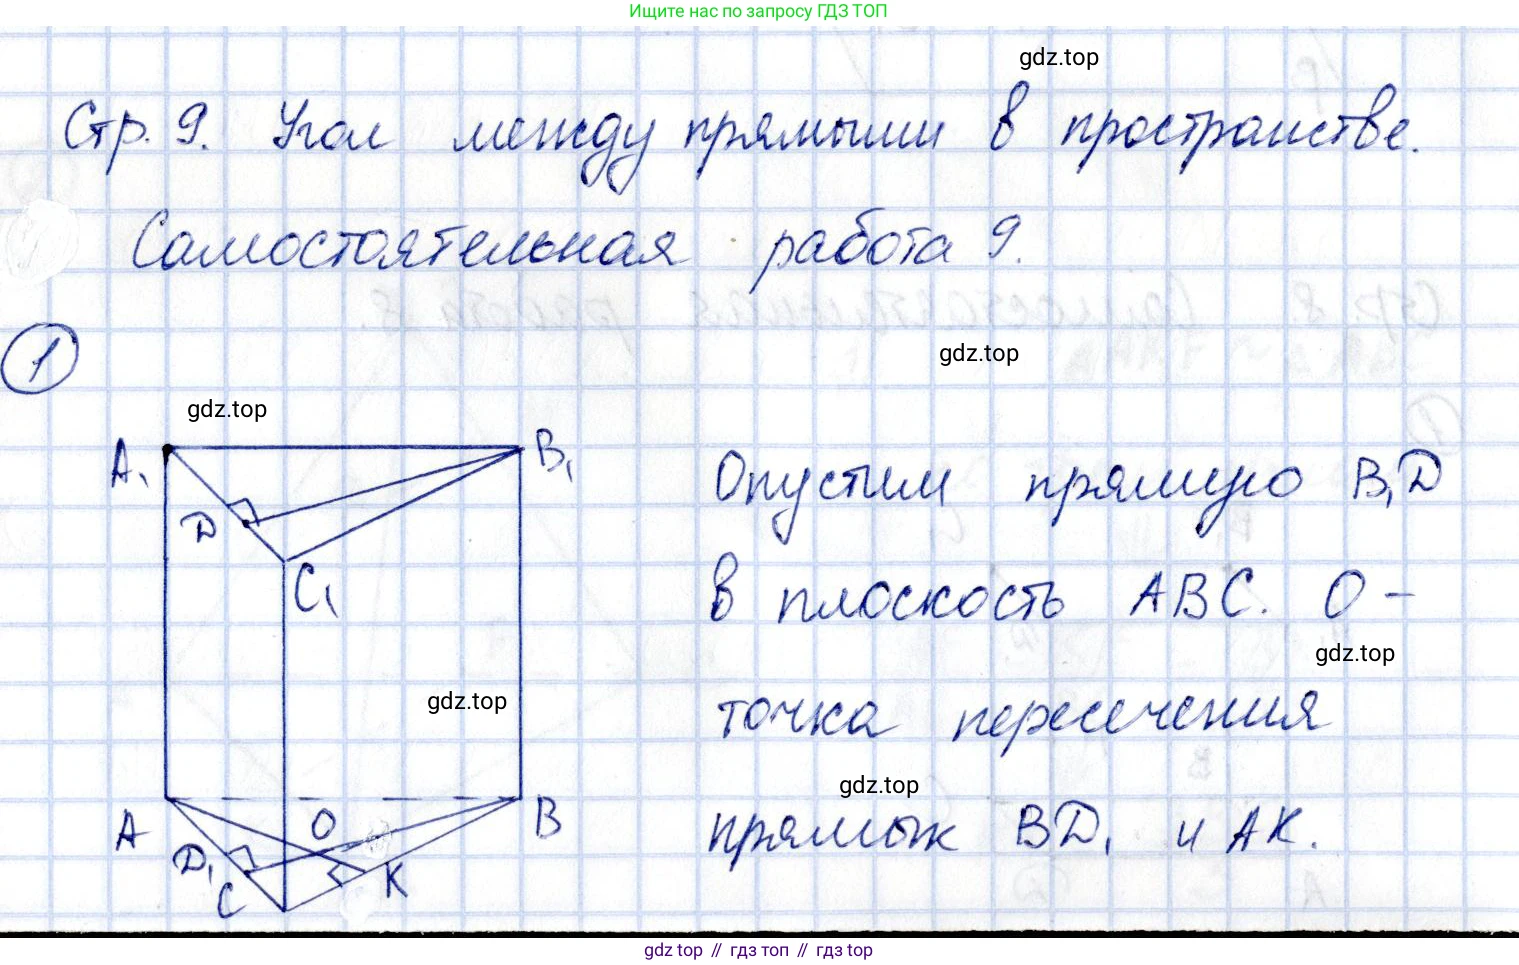 Ищите нас по запросу ГДЗ ТОП
gdz.top
Стр. 9. Угол между прямыми в пространстве.
Самостоятельная работа 9.
1
gdz.top
gdz.top
A₁
B₁
D
C₁
Опустим прямую B₁D
в плоскость ABC. O –
gdz.top
gdz.top
точка пересечения
gdz.top
прямых BD₁ и AK.
A
O
B
D₁
C
K
gdz.top // гдз топ // гдз top